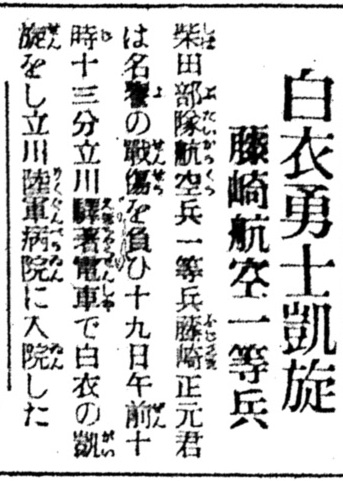 白衣勇士凱旋
藤崎航空一等兵
柴田部隊航空兵一等兵藤崎正元君
は名譽の戰傷を負ひ十九日午前十
時十三分立川驛著電車で白衣の凱
旋をし立川陸軍病院に入院した